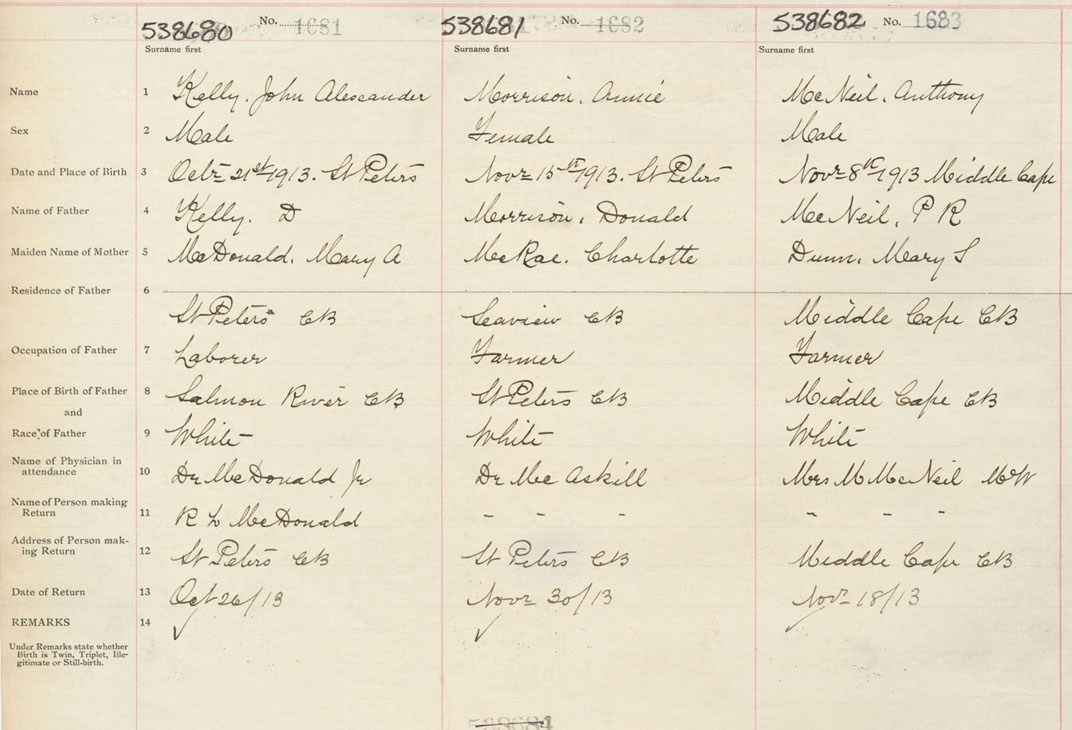 538680 No. 1681 538681 No. 1682 538682 No. 1683
Surname first Surname first Surname first
Name 1 Kelly. John Alexander Morrison. Annie McNeil. Anthony
Sex 2 Male Female Male
Date and Place of Birth 3 Octr 21st 1913. St Peters Novr 15th 1913. St Peters Novr 8th 1913 Middle Cape
Name of Father 4 Kelly. D Morrison. Donald McNeil. P R
Maiden Name of Mother 5 McDonald. Mary A McRae. Charlotte Dunn. Mary S
Residence of Father 6
St Peters CB Seaview CB Middle Cape CB
Occupation of Father 7 Laborer Farmer Farmer
Place of Birth of Father 8 Salmon River CB St Peters CB Middle Cape CB
and
Race of Father 9 White White White
Name of Physician in
attendance 10 Dr McDonald Jr Dr McAskill Mrs M McNeil MW
Name of Person making
Return 11 R L McDonald - - - - - -
Address of Person mak-
ing Return 12 St Peters CB St Peters CB Middle Cape CB
Date of Return 13 Oct 26/13 Novr 30/13 Novr 18/13
REMARKS 14 ✓ ✓ ✓
Under Remarks state whether
Birth is Twin, Triplet, Ille-
gitimate or Still-birth.
538684